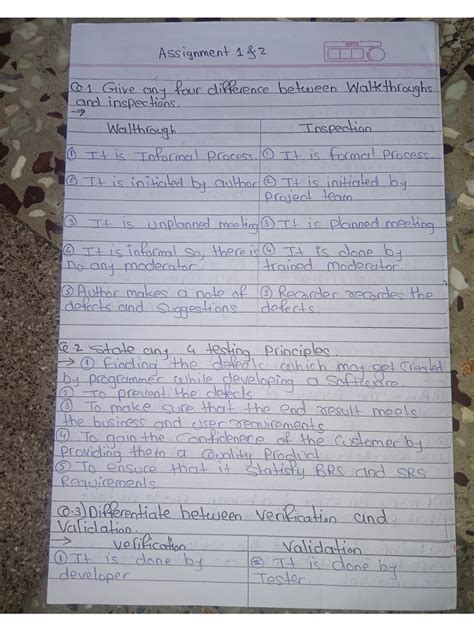 Assignment 1 & 2
Q.1 Give any four difference between Walkthroughs
and inspections.
→
Walthrough Inspection
① It is Informal Process ① It is formal Process.
② It is initiated by author ② It is initiated by
Project team
③ It is unplanned meeting ③ It is planned meeting
④ It is informal so, there is ④ It is done by
no any moderator. trained moderator.
⑤ Author makes a note of ⑤ Recorder recordes the
defects and suggestions defects.
Q.2 State any 4 testing Principles.
→ ① Finding the defects which may get created
by programmer while developing a software.
② To prevent the defects
③ To make sure that the end result meets
the business and user requirements
④ To gain the Confidence of the Customer by
providing them a Quality Product
⑤ To ensure that it Statisfy BRS and SRS
Requirements
Q.3) Differentiate between Verification and
Validation.
→ verification Validation
① It is done by ② It is done by
developer Tester.